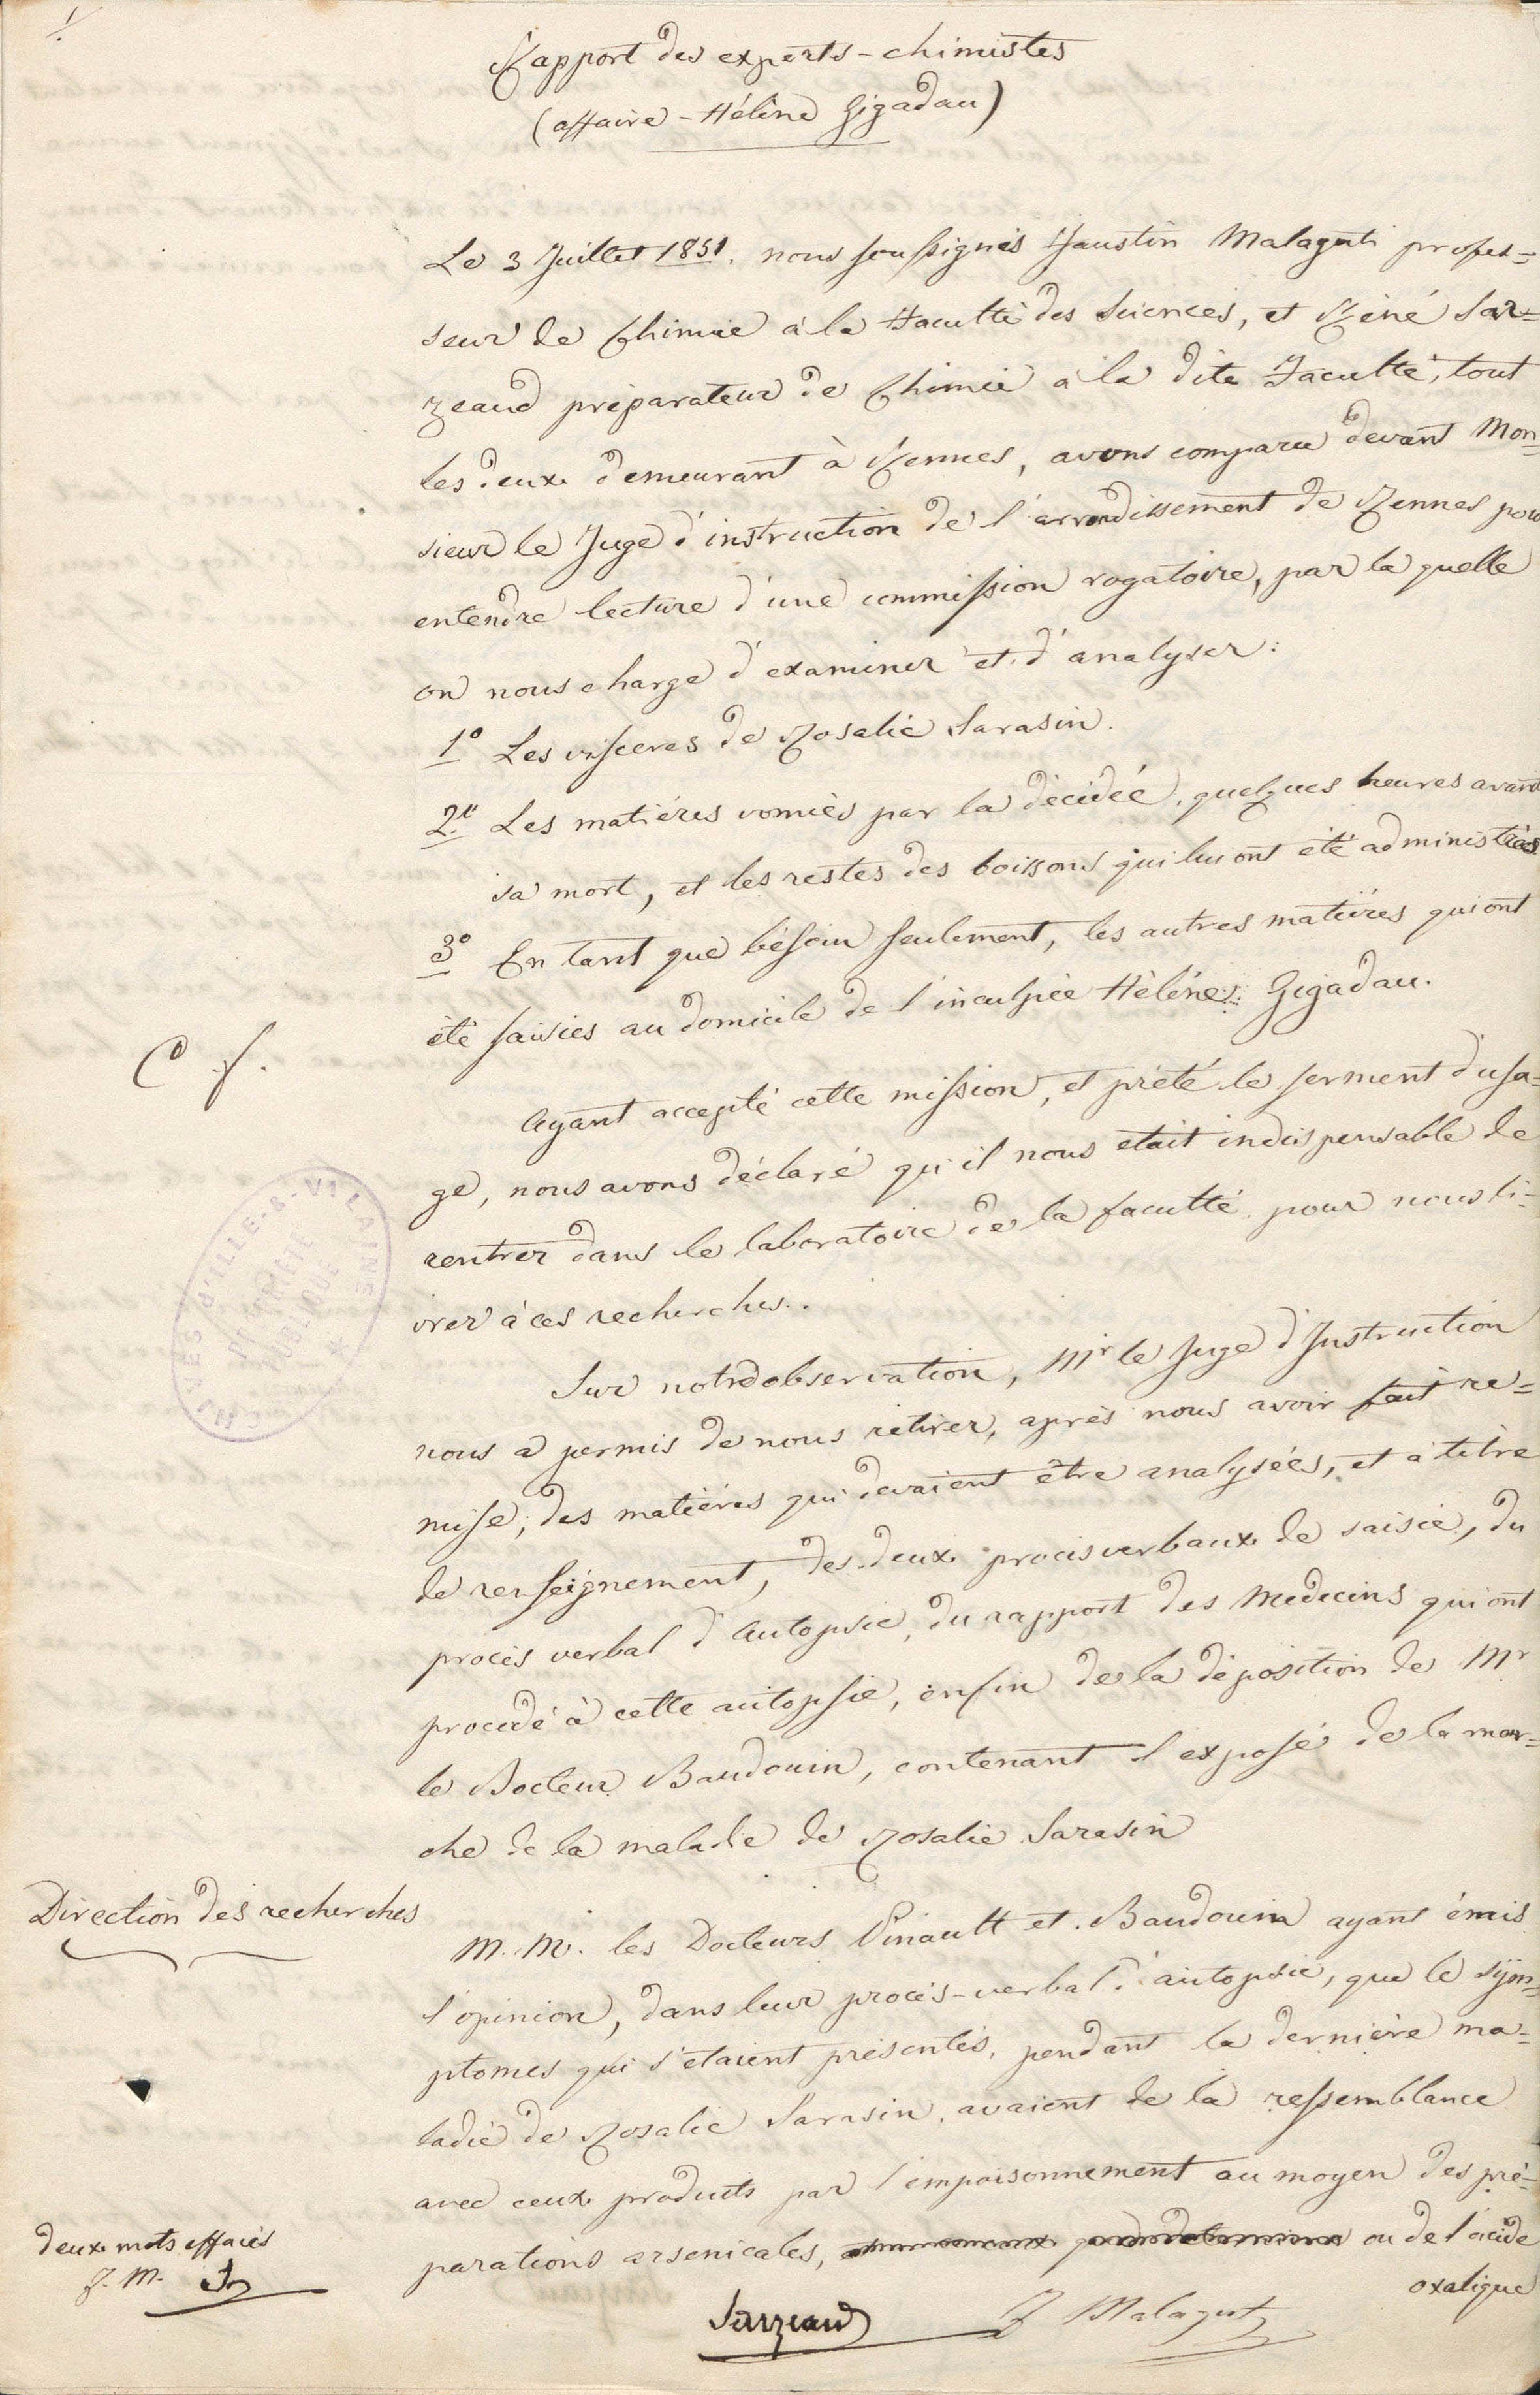 1/.
Rapport des experts-chimistes
(affaire - Hélène Gigadau)
Le 3 Juillet 1851. nous soussignés Faustin Malaguti profes=
seur de Chimie à la Faculté des Sciences, et Réné Sar=
zeaud préparateur de Chimie a la dite Faculté, tout
les deux demeurant à Rennes, avons comparu devant Mon=
sieur le Juge d'instruction de l'arrondissement de Rennes pour
entendre lecture d'une commission rogatoire, par la quelle
on nous charge d'examiner et d'analyser:
1º Les visceres de Rosalie Sarasin.
2º Les matiéres vomiés par la décédée, quelques heures avant
sa mort, et les restes des boissons qui lui ont été administrées
3º En tant que bésoin seulement, les autres matières qui ont
été saisies au domicile de l'inculpée Hélène Gigadau.
C f.
Ayant accepté cette mission, et prété le serment d'usa=
ge, nous avons déclaré qu'il nous etait indispensable de
rentrer dans le laboratoire de la faculté pour nous li=
vrer à ces recherches.
ARCHIVES D'ILLE-&-VILAINE
PROPRIÉTÉ
PUBLIQUE
Sur notre observation, Mr le Juge d'Instruction
nous a permis de nous retirer, après nous avoir fait re=
mise, des matiéres qui devaient être analysées, et à titre
de renseignement, des deux procis verbaux de saisie, du
procés verbal d'Autopsie, du rapport des Medecins qui ont
procedé à cette autopsie, enfin de la déposition de Mr
le Docteur Baudouin, contenant l'exposé de la mar=
che de la maladie de Rosalie Sarasin
Direction des recherches
M. M. les Docteurs Pinault et Baudouin ayant émis
l'opinion, dans leur procés-verbal d'autopsie, que le sym=
ptomes qui s'etaient présentés, pendant la dernière ma=
ladie de Rosalie Sarasin, avaient de la ressemblance
avec ceux produits par l'empoisonnement au moyen des pré=
parations arsenicales, ou de l'acide
oxalique
deux mots effacés
f. M. Sz
Sarzeaud F Malaguti